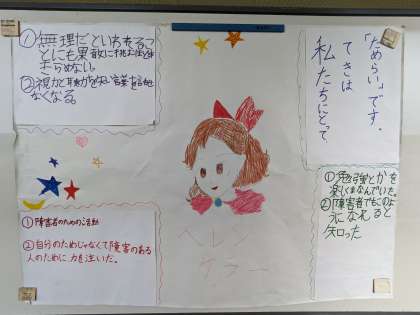 ①無理だといわれるこ
とにも果敢に挑み
きらめない。
②視力と聴力を失い言葉を話せ
なくなる。
「ためらい」です。
てきは
私たちにとって
①勉強とかを
楽しまなんでいた。
②障害者でもこのよ
うになれると
知った
①障害者のための活動
②自分のためじゃなくて障害のある
人のために力を注いだ。
ヘレン
ケラー